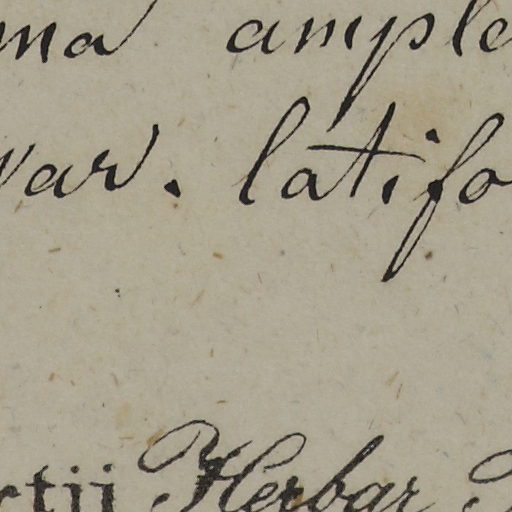 ma ample
var. latifo
ctii Herbar